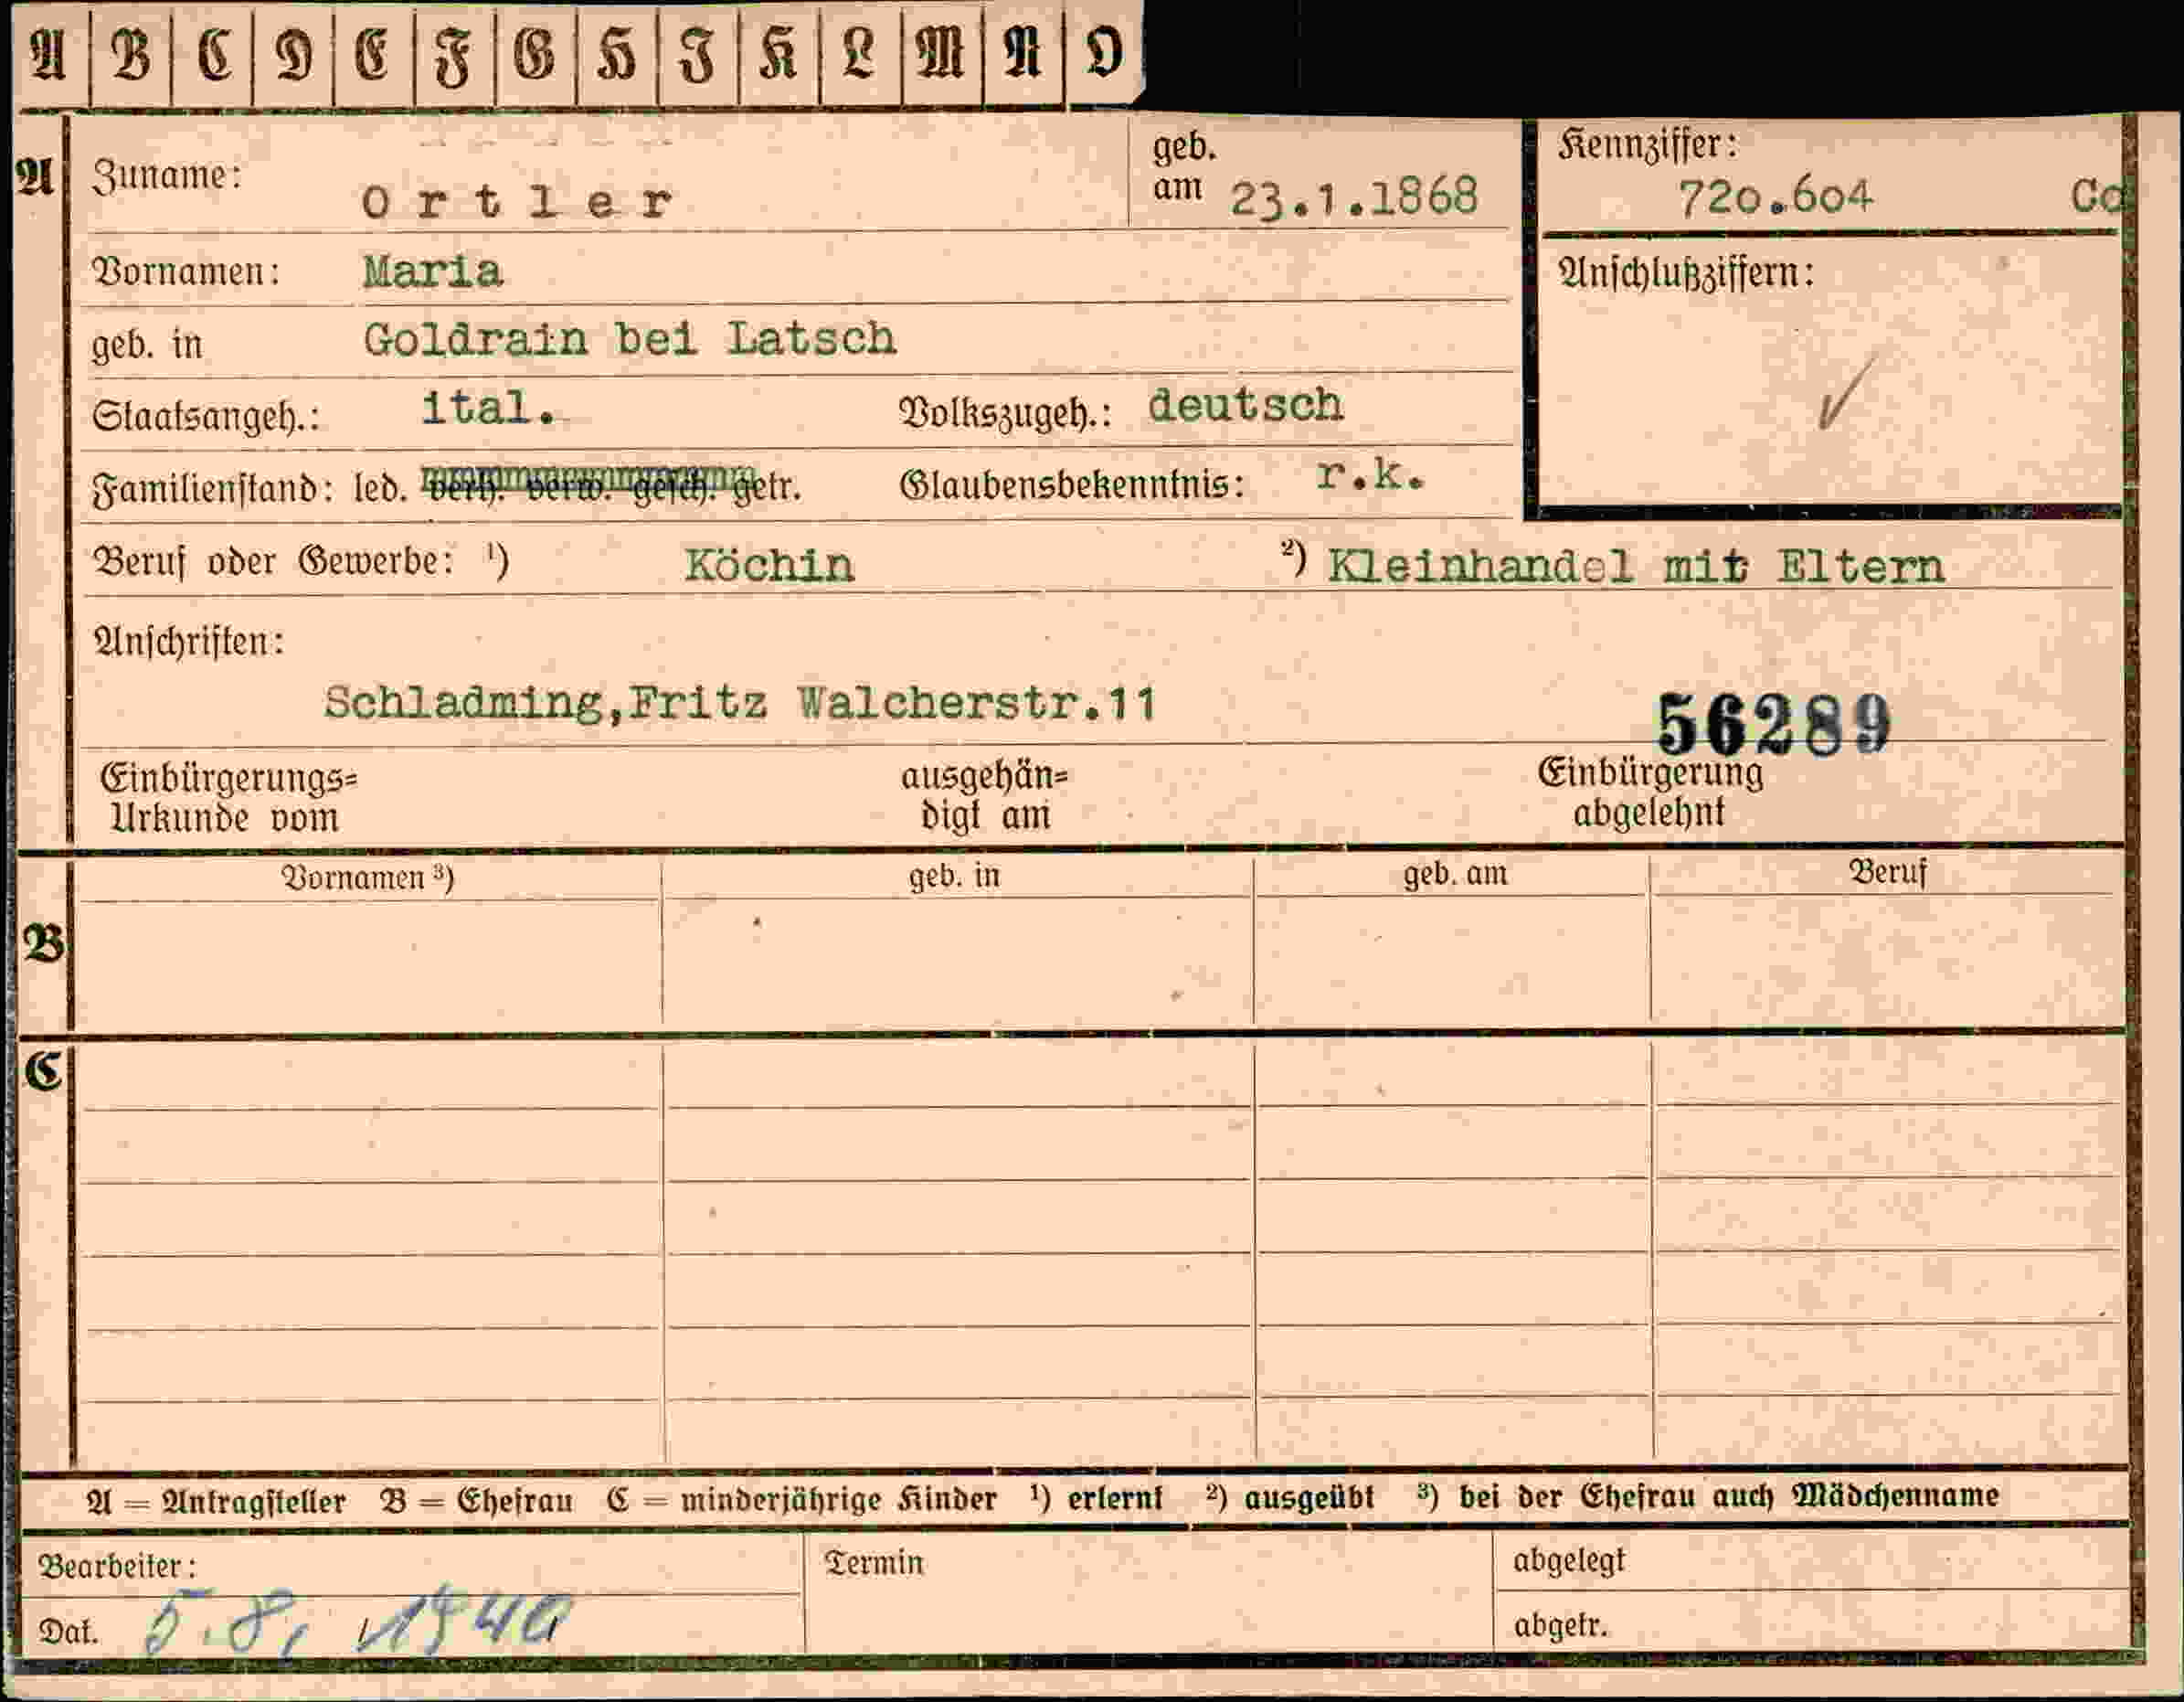 A B C D E F G H J K L M N O
A Zuname: Ortler geb. am 23.1.1868 Kennziffer: 720.604 Co
Vornamen: Maria Anschlußziffern:
geb. in Goldrain bei Latsch
Staatsangeh.: ital. Volkszugeh.: deutsch
Familienstand: led. verh. verw. gesch. getr. Glaubensbekenntnis: r.k.
Beruf oder Gewerbe: ¹) Köchin ²) Kleinhandel mit Eltern
Anschriften:
Schladming,Fritz Walcherstr.11 56289
Einbürgerungs= ausgehän= Einbürgerung
Urkunde vom digt am abgelehnt
Vornamen ³) geb. in geb. am Beruf
B
C
A = Antragsteller B = Ehefrau C = minderjährige Kinder ¹) erlernt ²) ausgeübt ³) bei der Ehefrau auch Mädchenname
Bearbeiter: Termin abgelegt
Dat. 5.8. 1940 abgetr.